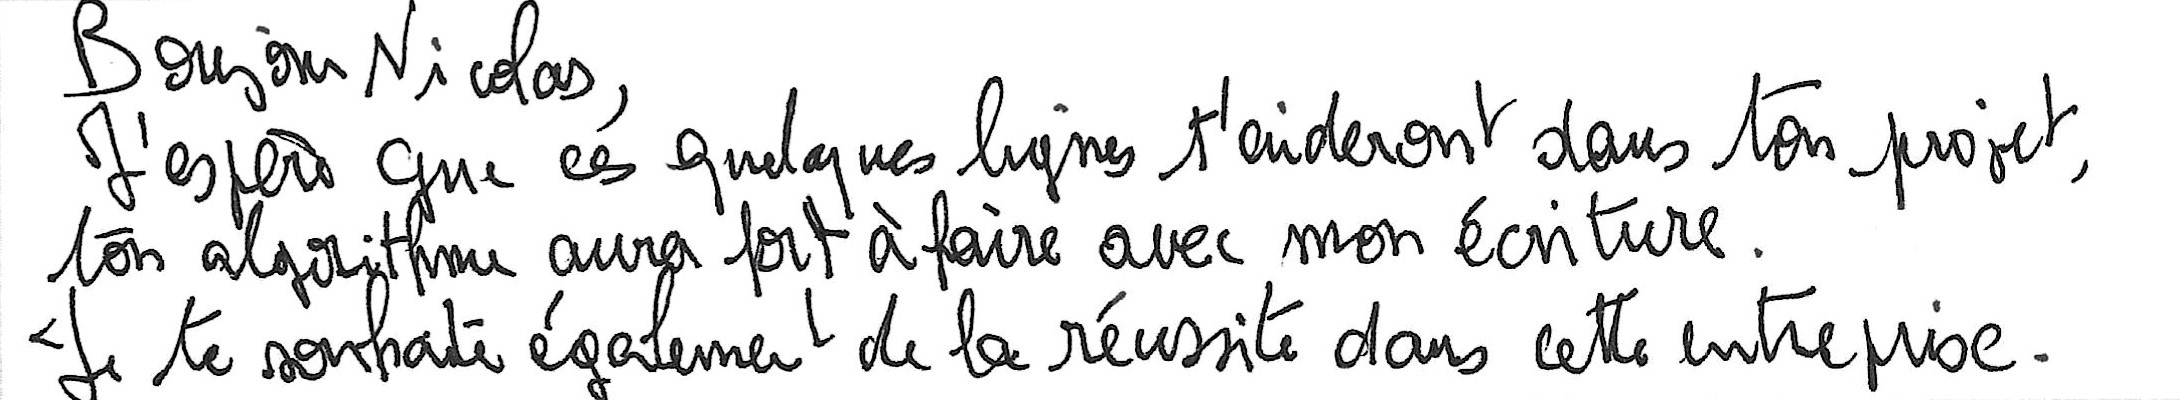 Bonjour Nicolas,
J'espère que ces quelques lignes t'aideront dans ton projet,
ton algorithme aura fort à faire avec mon écriture.
Je te souhaite également de la réussite dans cette entreprise.